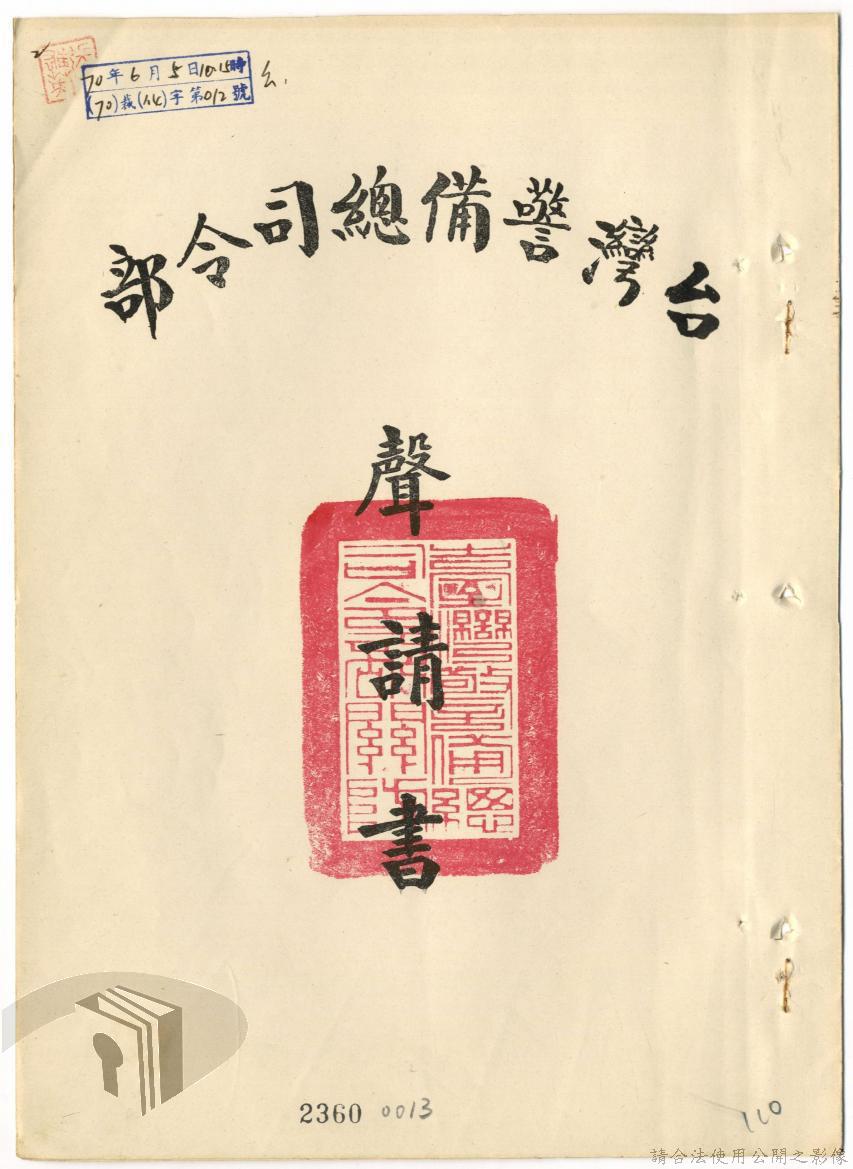 70年6月5日10.15時
(70)裁(化)字第012號
台灣警備總司令部
聲請書
臺灣警備總
司令部關防
2360 0013
110
請合法使用公開之影像